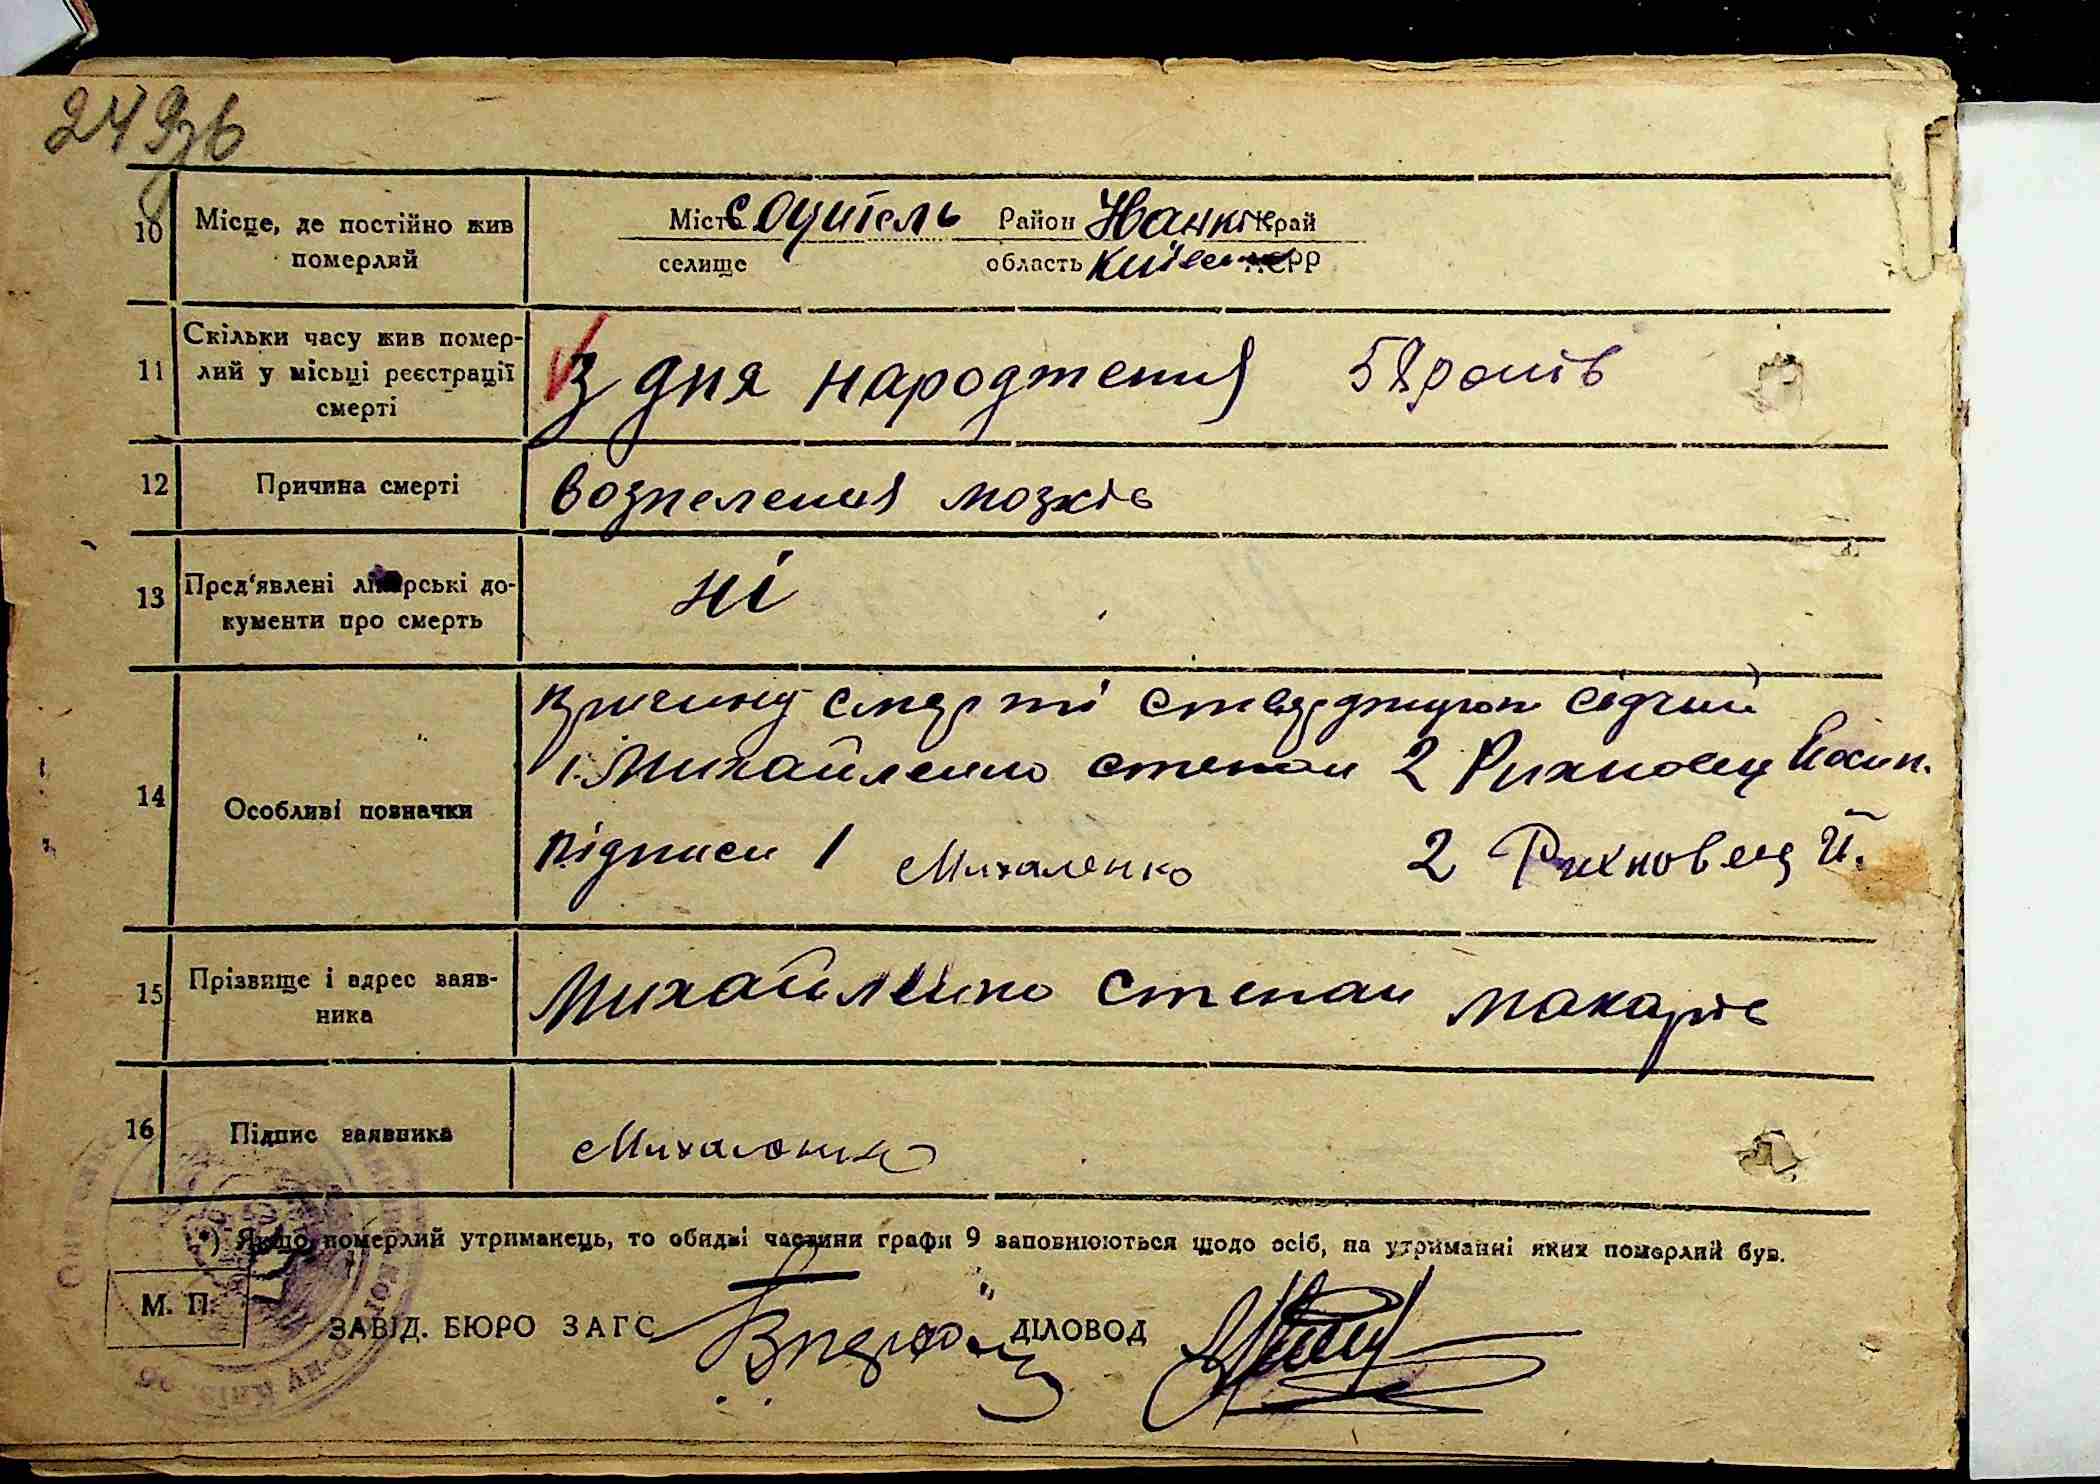 249зв
10 Місце, де постійно жив померлий
Місто с Оцитель Район Іванків Край
селище область Київськ АСРР
11 Скільки часу жив померлий у місьці реєстрації смерті
З дня народження 58 років
12 Причина смерті
возпеления мозків
13 Пред'явлені лікарські документи про смерть
ні
14 Особливі позначки
причину смерті стверджують свідки
1. Михайленко степан 2 Рихновец Йосип.
підписи 1 Михаленко 2 Рихновец Й.
15 Прізвище і адрес заявника
Михайленко степан макарів
16 Підпис заявника
Михаленко
*) Якщо померлий утриманець, то обидві частини графи 9 заповнюються щодо осіб, на утриманні яких померлий був.
М. П.
ЗАВІД. БЮРО ЗАГС ДІЛОВОД